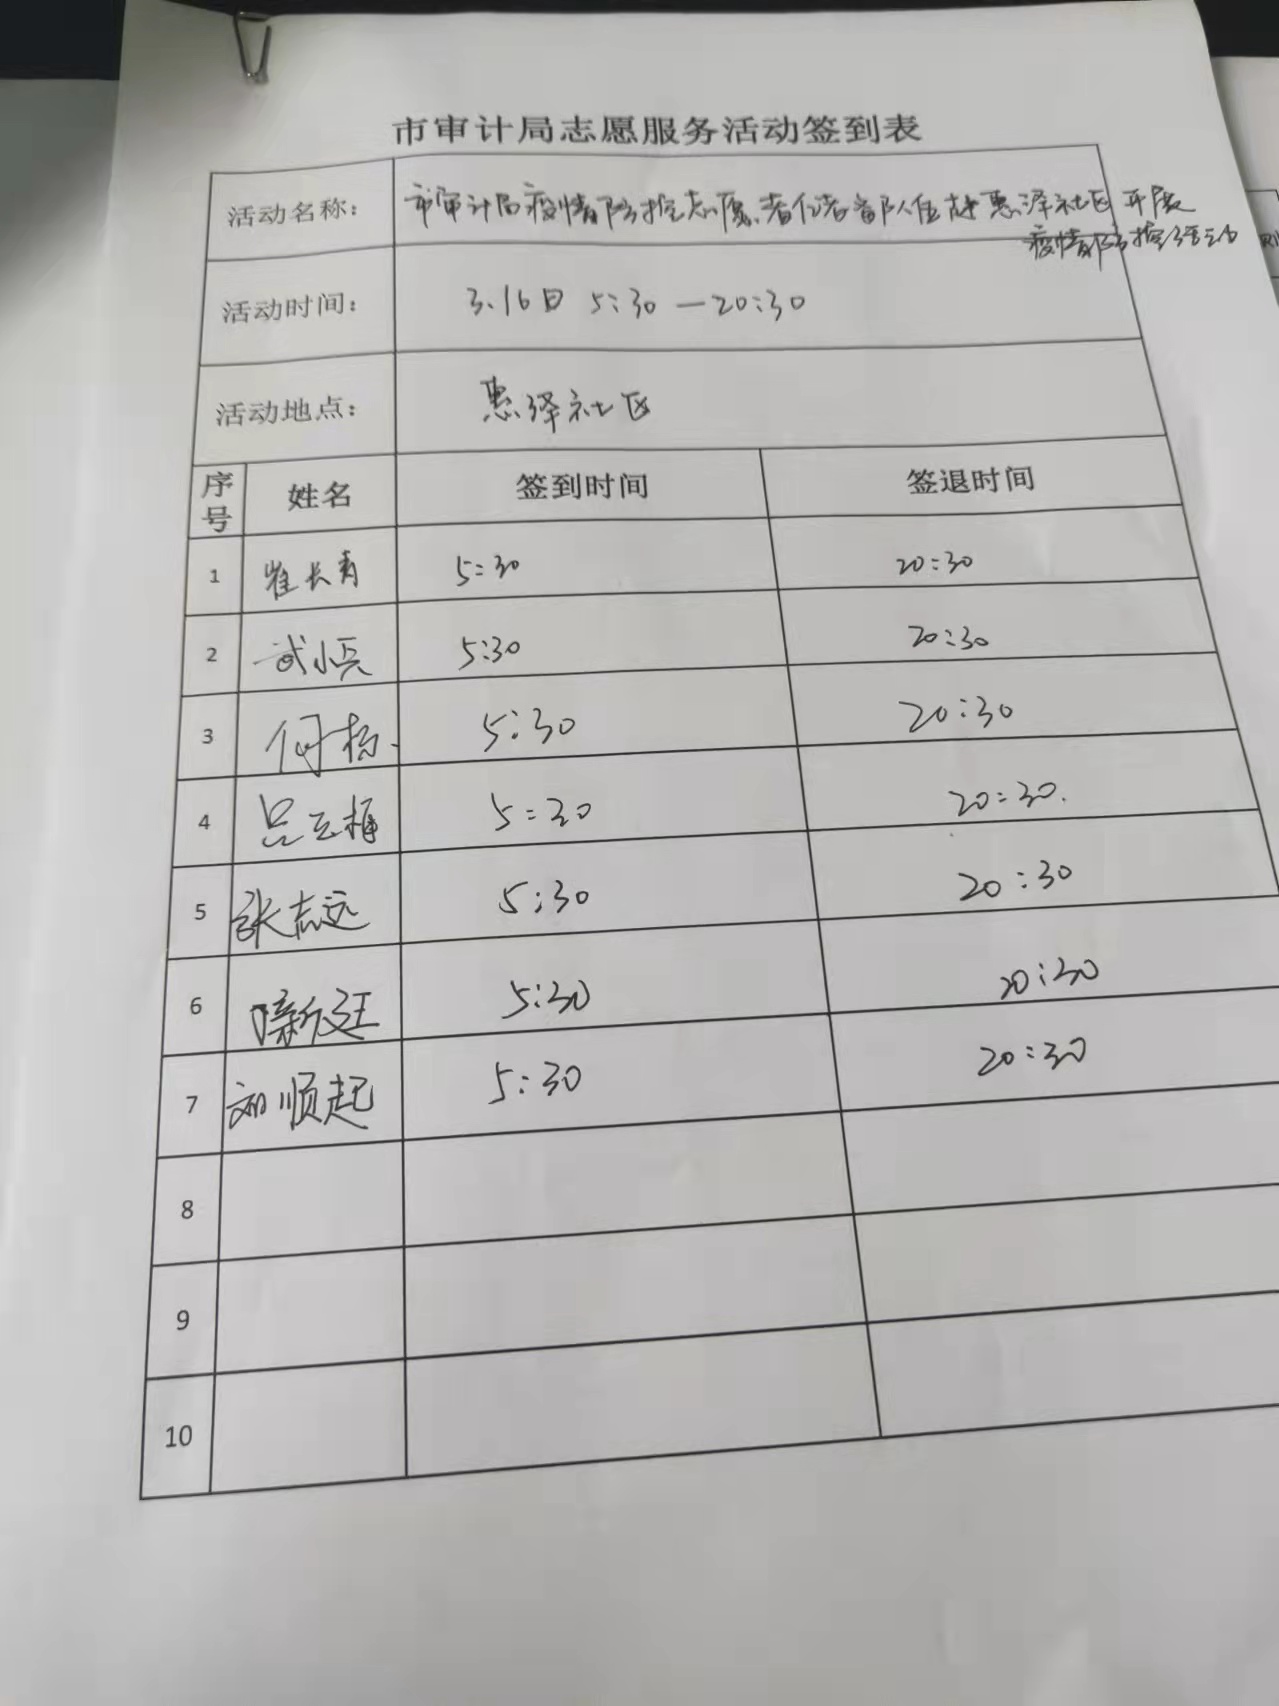 市审计局志愿服务活动签到表
活动名称： 市审计局疫情防控志愿者储备队伍赴惠泽社区开展
疫情防控活动
活动时间： 3.16日 5:30—20:30
活动地点： 惠泽社区
序号 姓名 签到时间 签退时间
1 崔长青 5:30 20:30
2 武小兵 5:30 20:30
3 何杨 5:30 20:30
4 5:30 20:30
5 张志远 5:30 20:30
6 5:30 20:30
7 刘顺起 5:30 20:30
8
9
10